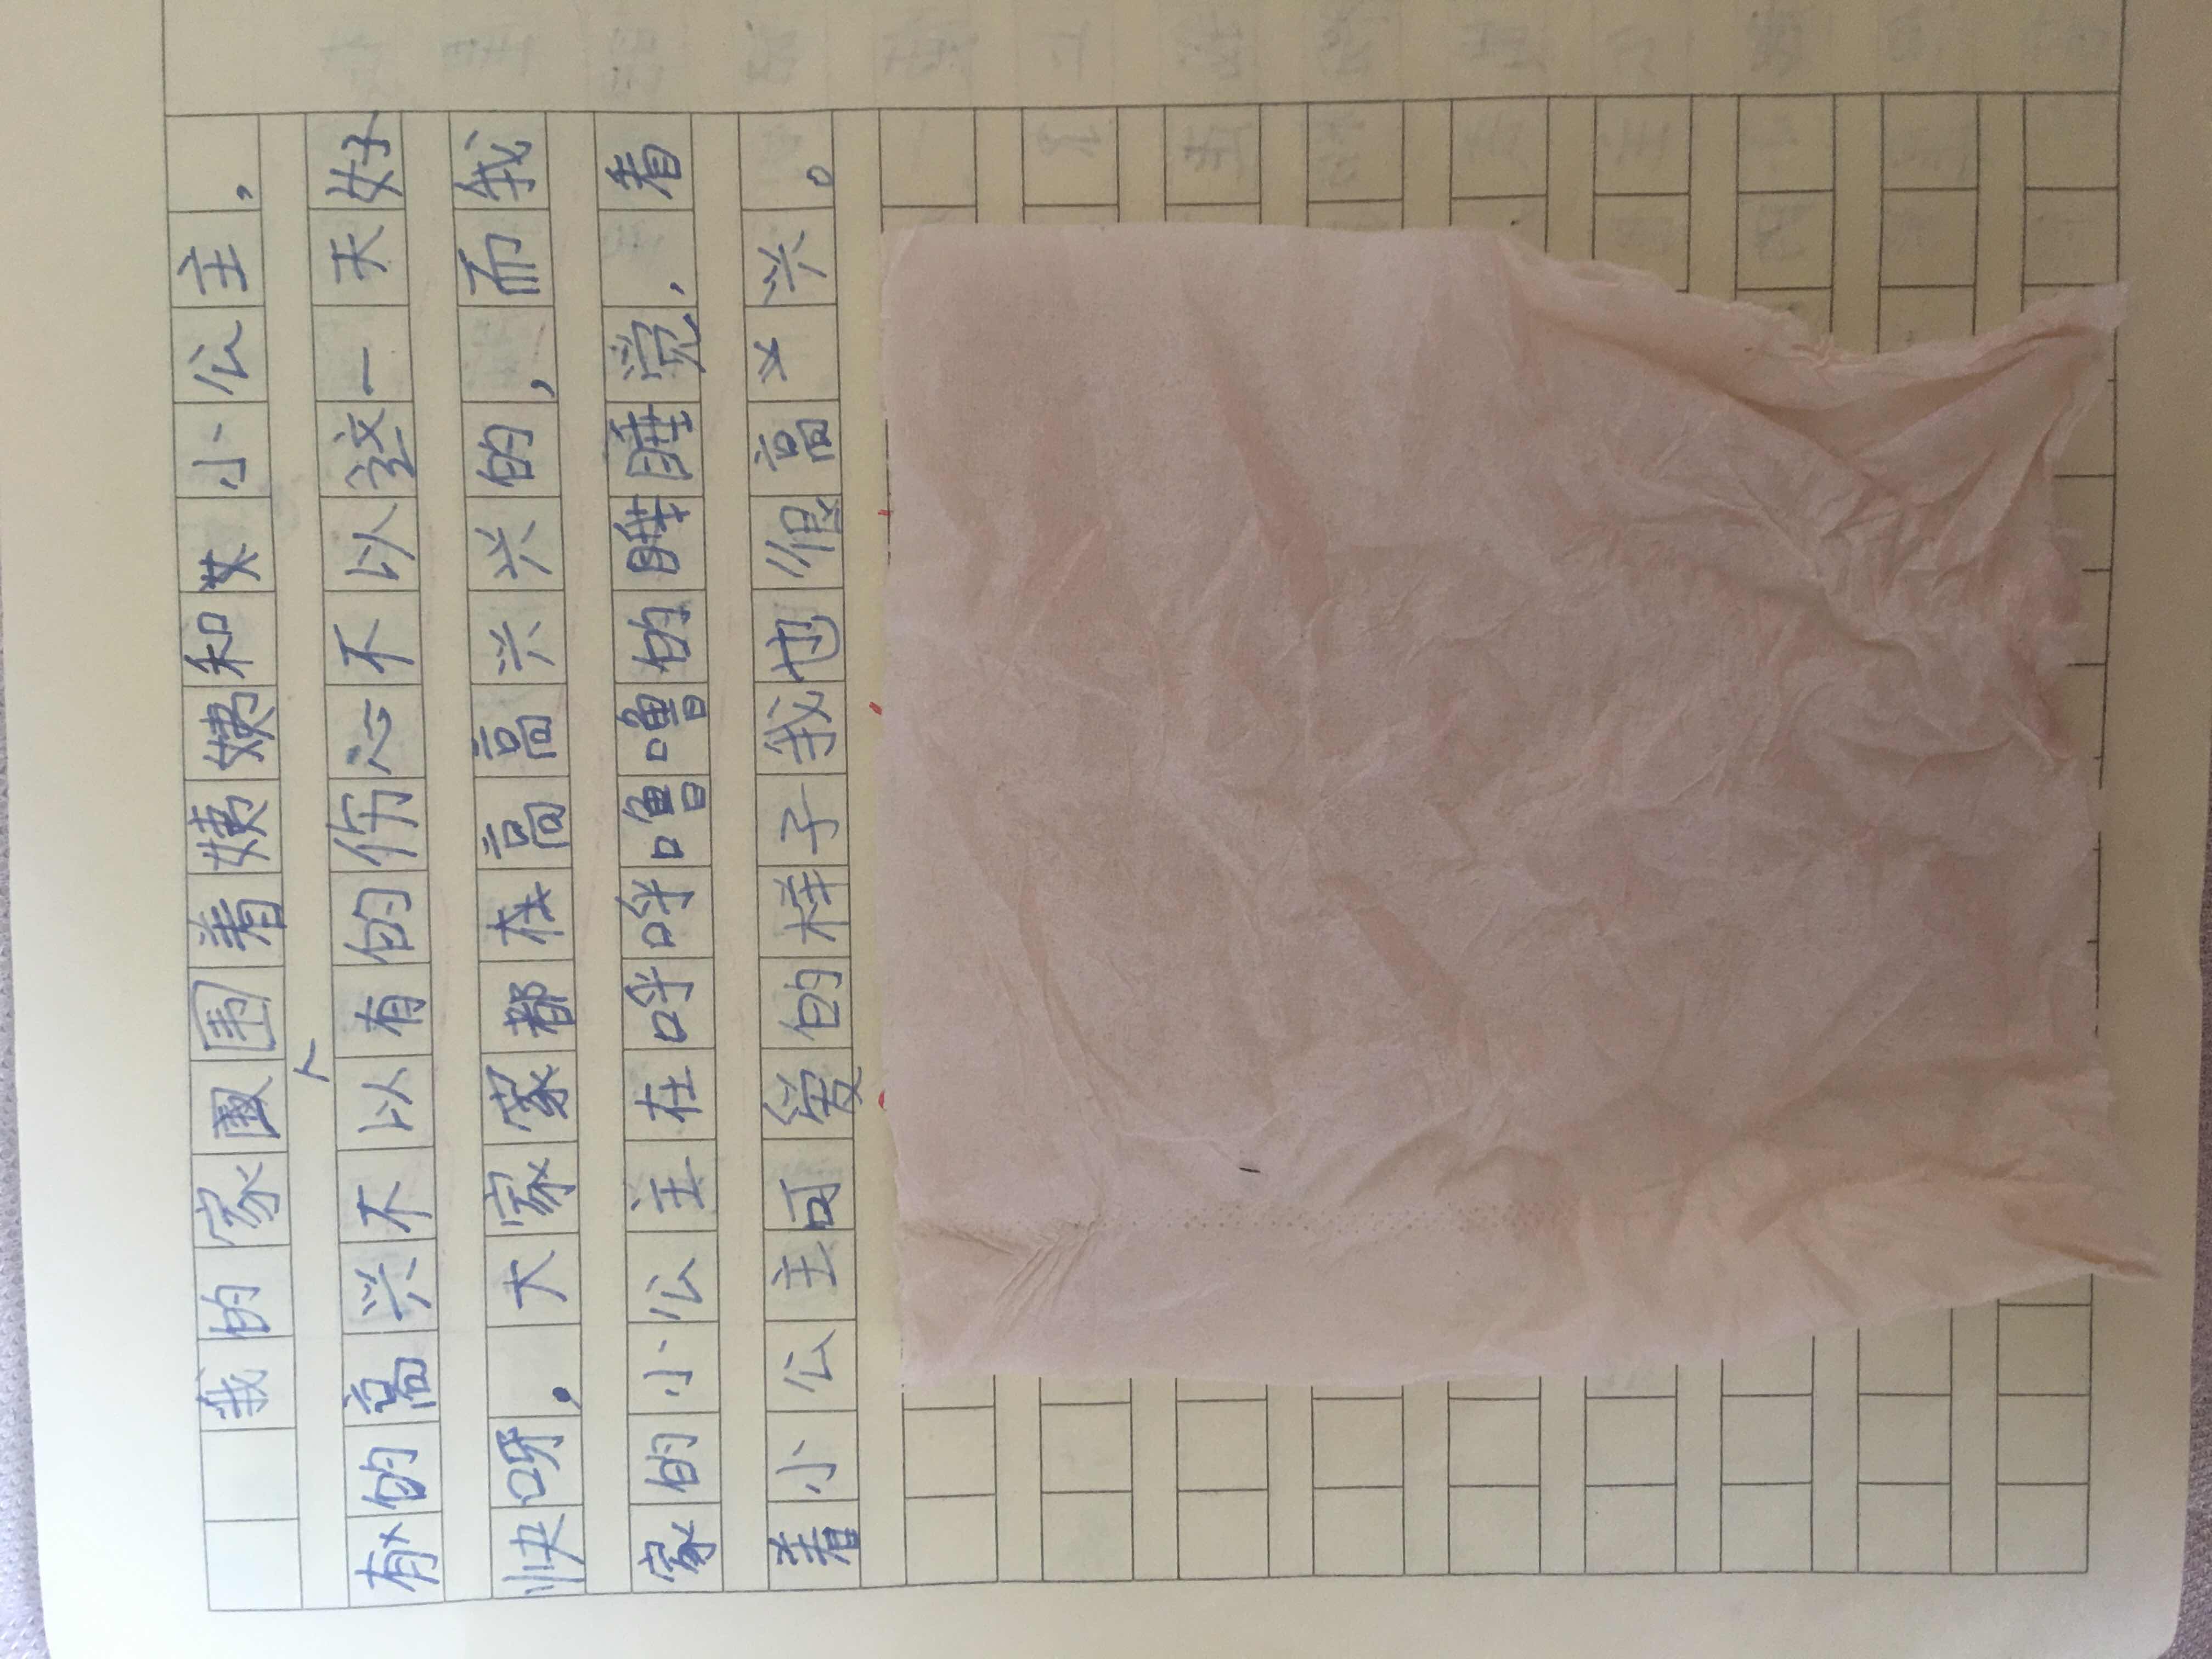 我的家围围着姨姨和女小公主，
有的高兴不以有的伤心不以这一天好
快呀，大家家都在高高兴兴的，而我
家的小公主在呼呼噜噜的睡睡觉，看
着小公主可爱的样子我也很高兴。